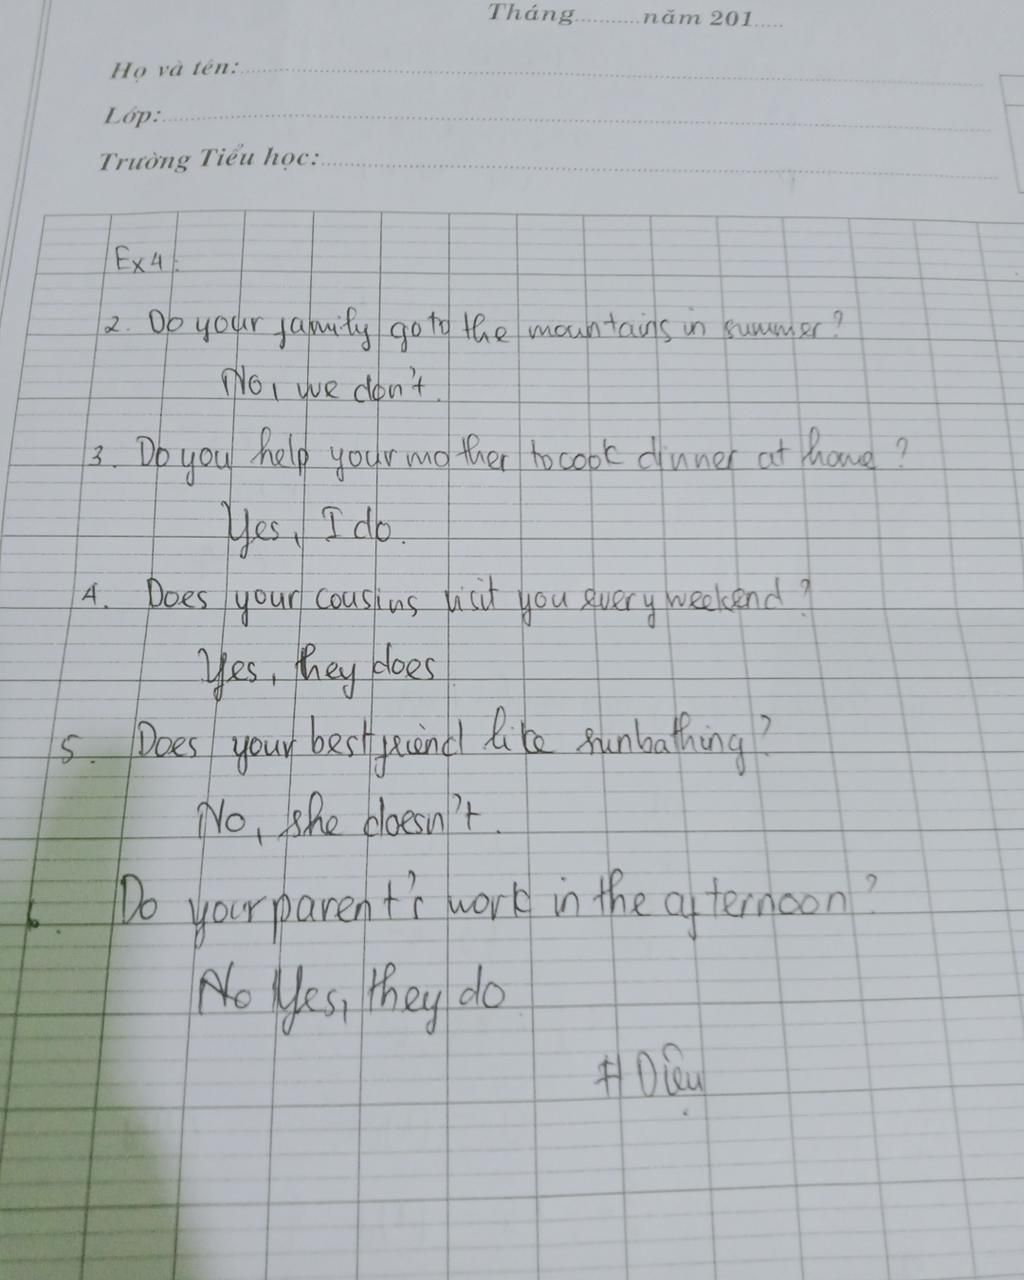 Tháng..........năm 201.....
Họ và tên:
Lớp:
Trường Tiểu học:
Ex 4:
2. Do your family go to the mountains in summer?
No, we don't.
3. Do you help your mother to cook dinner at home?
Yes, I do.
4. Does your cousins visit you every weekend?
Yes, they does
5. Does your best friend like sunbathing?
No, she doesn't.
6. Do your parent's work in the afternoon?
No Yes, they do
# Diệu